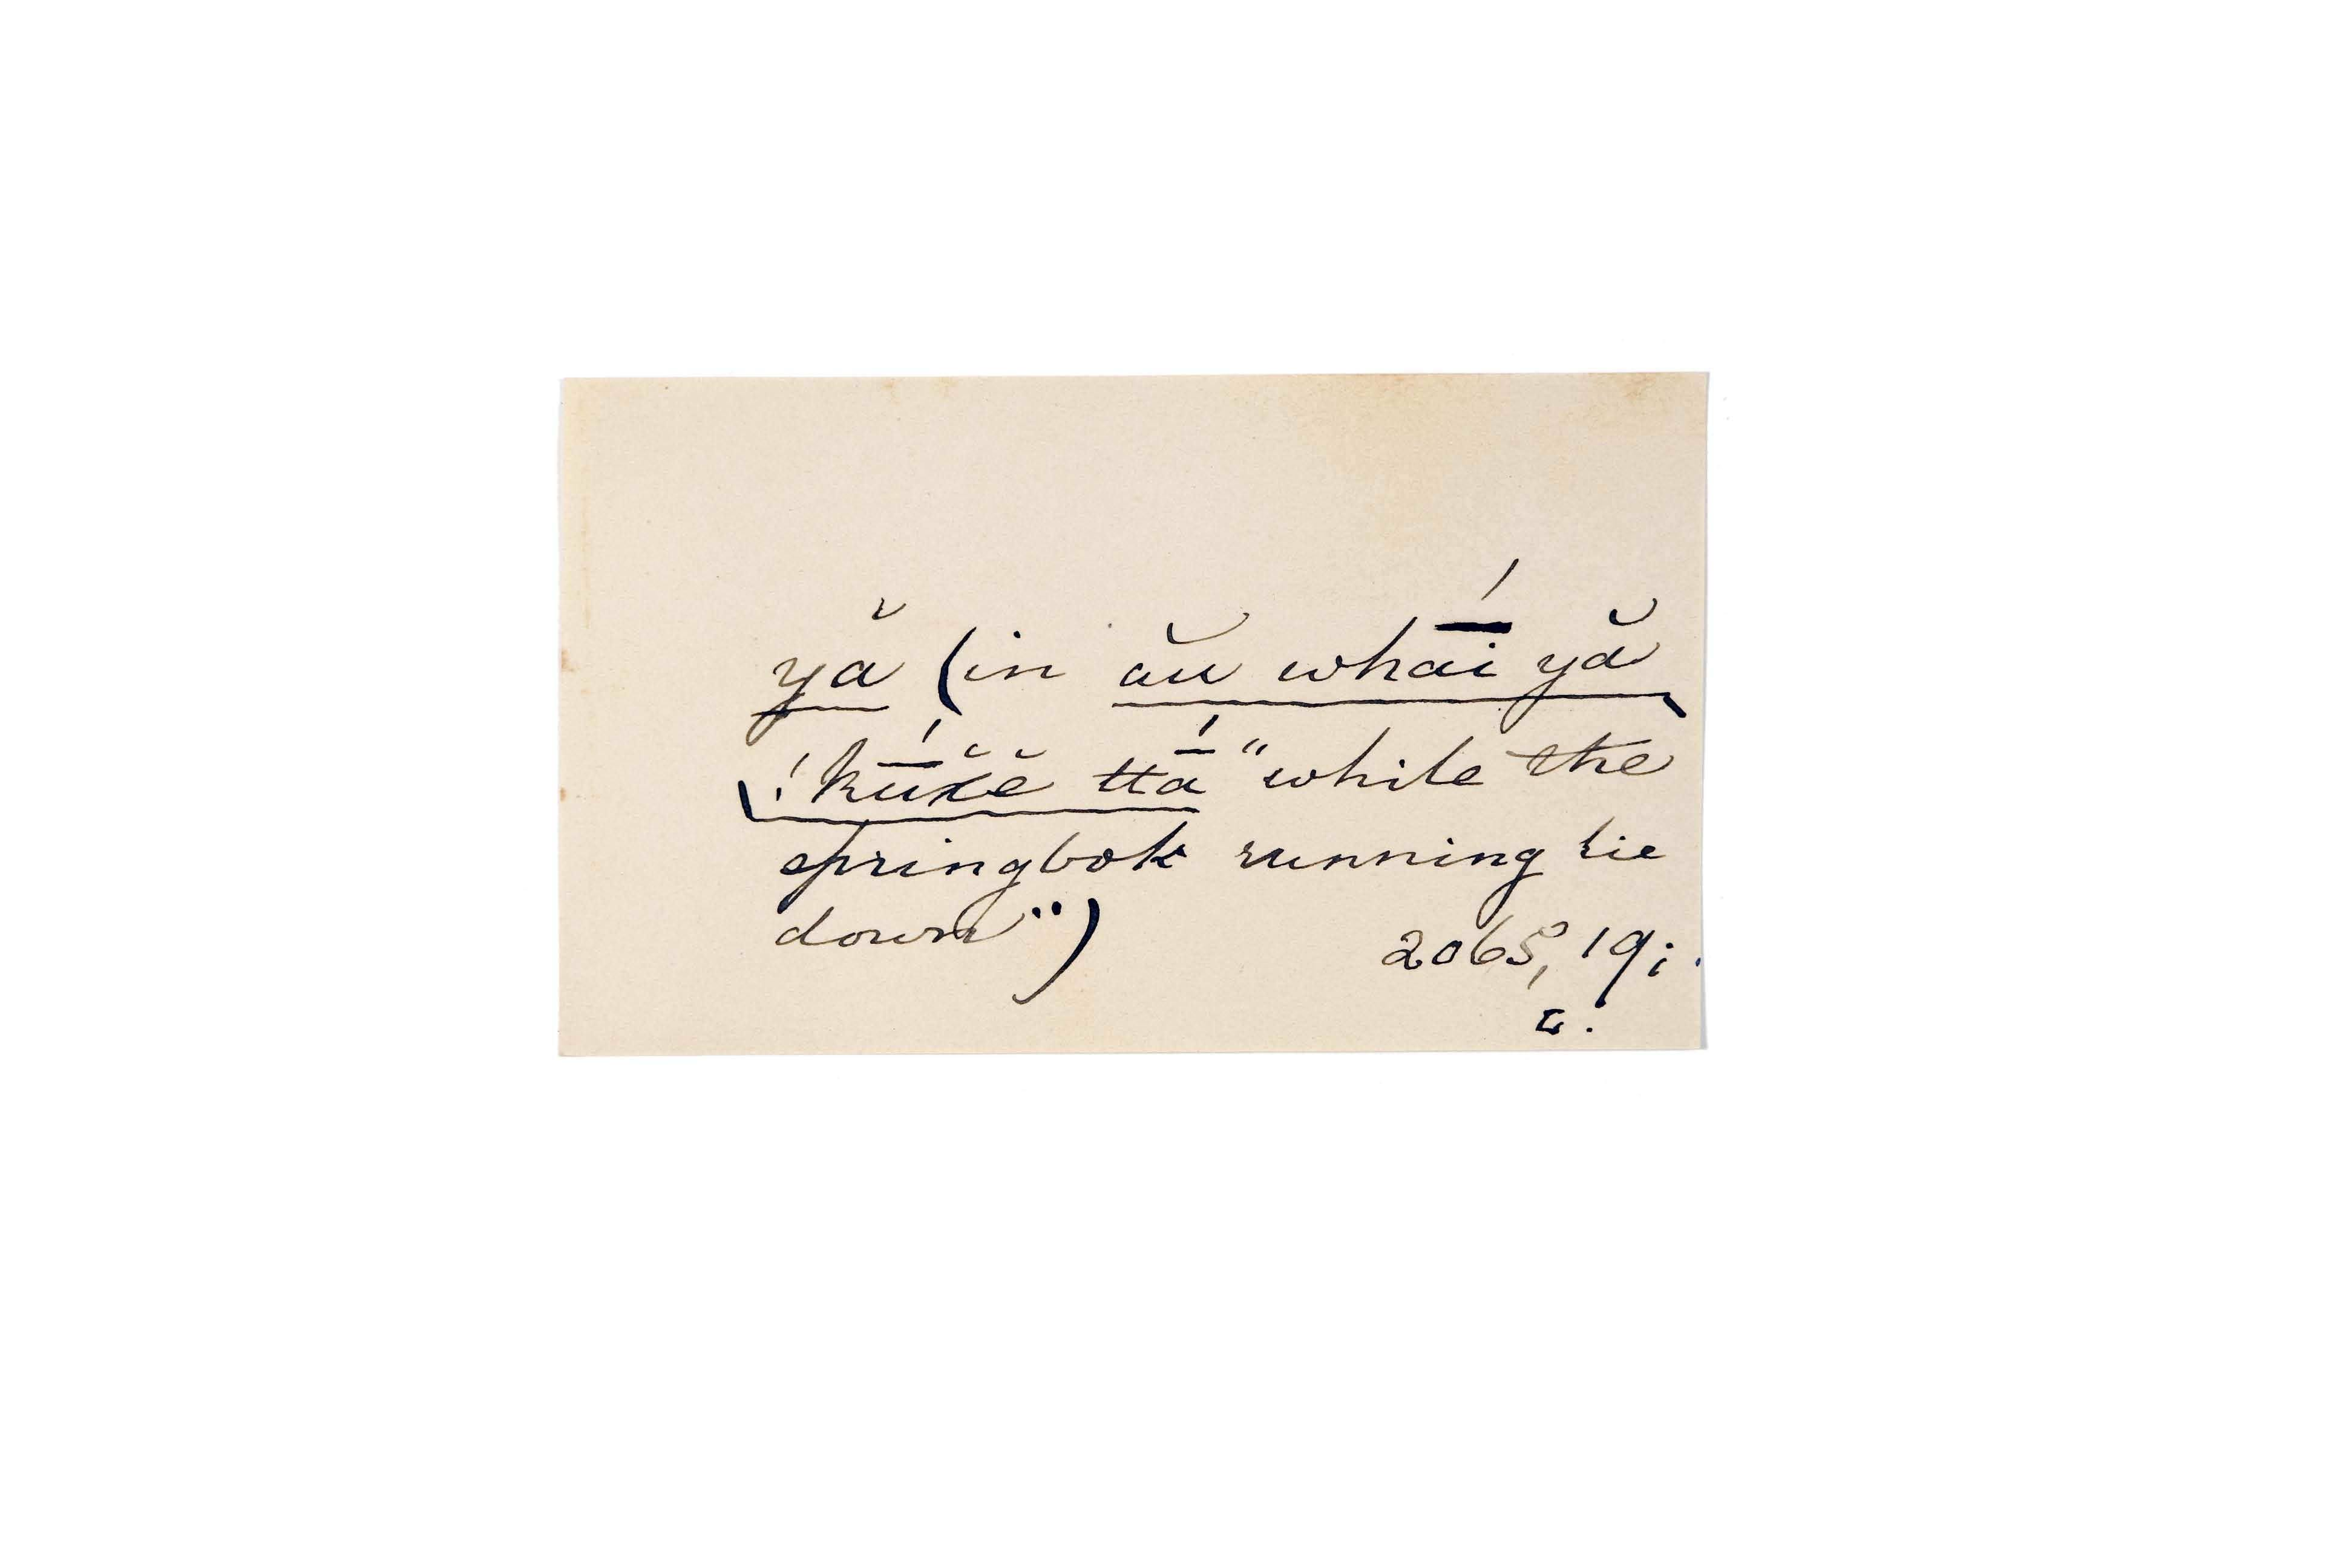 yă (in ăŭ whā́i yă
!kū́χĕ̆ ttā́ "while the
springbok running lie
down")
2065, 19;